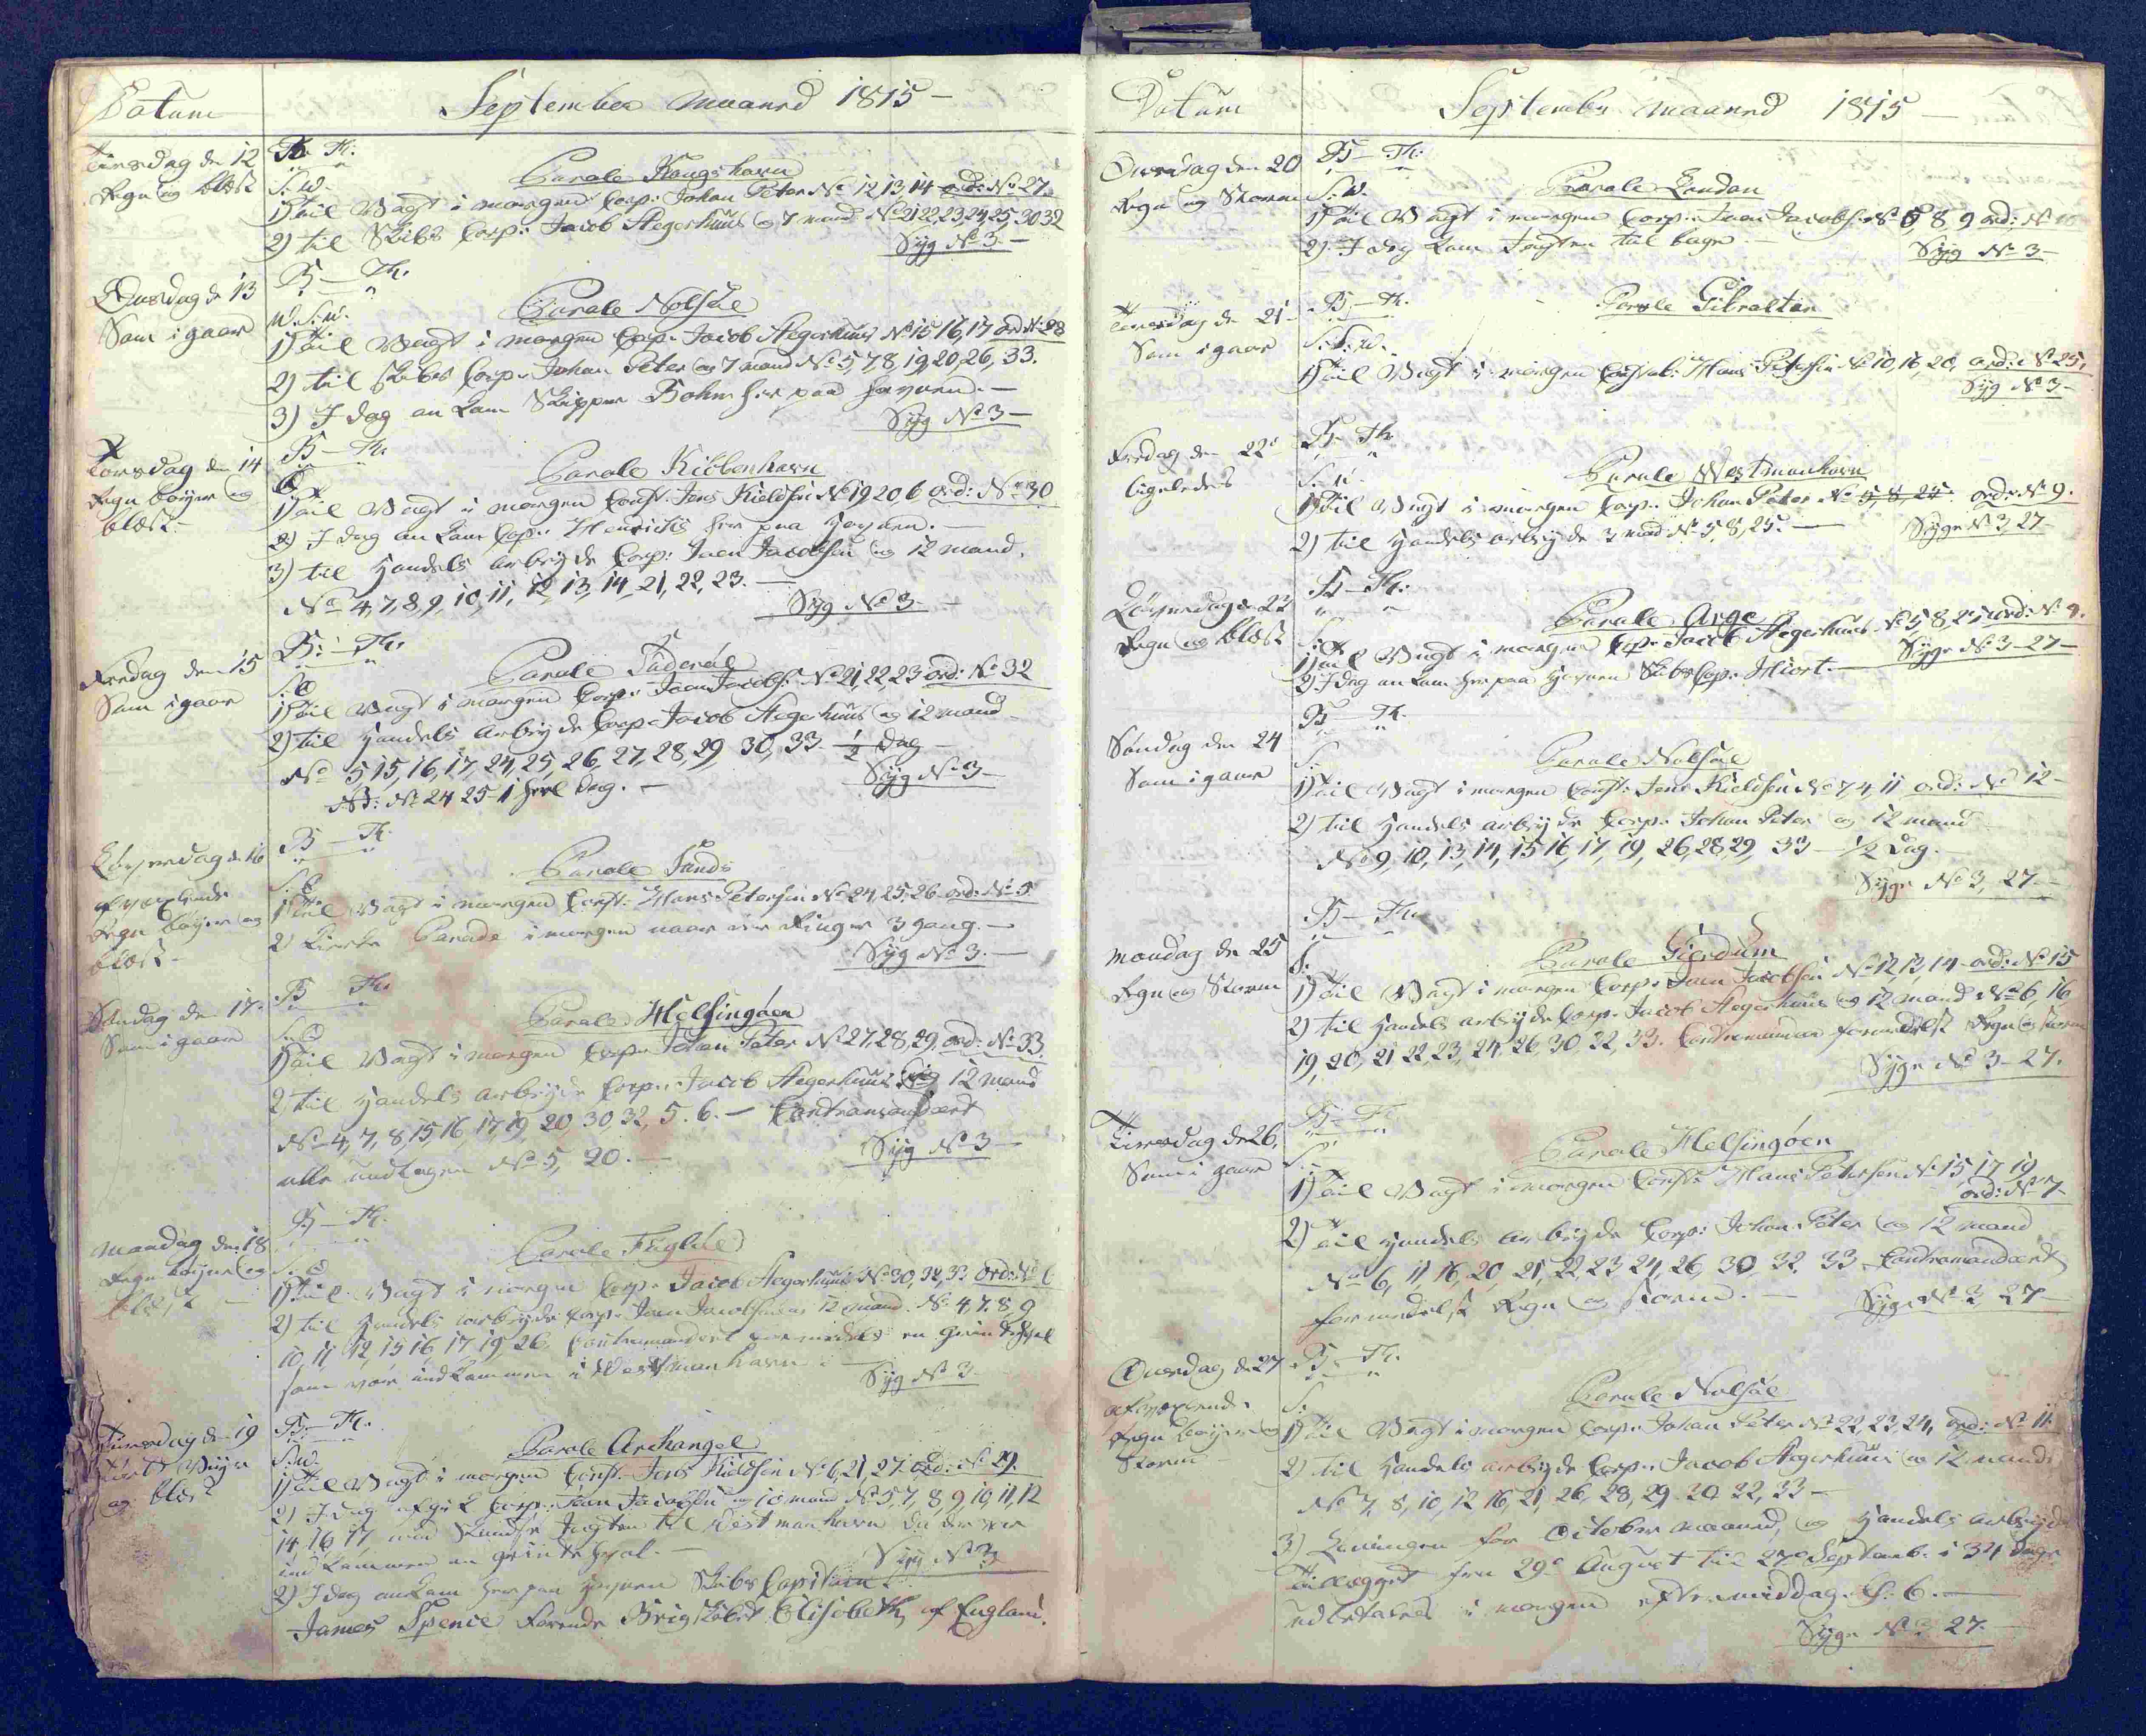 Datum
September Maaned 1815 –
Tirsdag den 12
Regn og blæst
B – Th:
S:W.
Parole Kongshavn
1) til Vagt i morgen Corp: Johan Peter No 12 13, 14 ord: No 27.
2) til Skibs Corp: Jacob Aegerhuus og 7 mand No 21 22, 23, 24, 25, 30 32
Syg No 3 –
Onsdag d 13
Som i gaar
B – Th:
W.S.W.
Parole Nolsöe
1) til Vagt i morgen Corp: Jacob Aegerhuus No 15 16, 17 ord No 28
2) til Skibs Corp: Johan Peter og 7 mand No 5, 7, 8, 19, 20, 26, 33.
3) I dag an kom Skipper Bohn her paa havnen. –
Syg No 3 –
Torsdag den 14
Regn böyer og
blæst –
B – Th:
Parole Kiöbenhavn
1) til Vagt i morgen Const: Jens Kieldsen No 19 20 6 ord: No 30
2) I dag an kom Cap: Hendichs her paa Havnen. –
3) til Handels arbeyde Corp: Joen Jacobsen og 12 mand.
No 4, 7, 8, 9, 10, 11, 12, 13, 14, 21, 22, 23. –
Syg No 3 –
Fredag den 15
Som i gaar
B: – Th:
S:O
Parole Suderöe
1) til Vagt i morgen Corp: Joen Jacobs: No 21, 22 23 ord: No 32
2) til Handels arbeyde Corp: Jacob Aegerhuus og 12 mand –
No 5 15, 16, 17, 24, 25, 26, 27, 28, 29, 30, 33. ½ dag –
NB: No 24 25 – 1 heel dag. –
Syg No 3 –
Löverdag d. 16
afvexlende
Regn böyer og
blæst –
B – Th:
S:O
Parole Sands
1) til Vagt i morgen Const: Hans Petersen No 24, 25. 26 ord: No 5
2) Kierke Parade i morgen naar der Ringer 3 gang. –
Syg No 3. –
Söndag den 17.
Som i gaar
B – Th:
S:O
Parole Helsingöen
1) til Vagt i morgen Corp: Johan Peter No 27, 28, 29. ord: No 33.
2) til Handels arbeyde Corp: Jacob Aegerhuus og 12 mand
No 4, 7, 8, 15, 16, 17, 19, 20, 30, 32, 5. 6. – Contramandeert
alle undtagen No 5, 20. –
Syg No 3 –
Mandag den 18
Regn böyer og
blæst –
B – Th:
S:O
Parole Fuglöe
1) til Vagt i morgen Corp: Jacob Aegerhuus No 30, 32, 33 ord: No 6
2) til Handels arbeyde Corp: Joen Jacobsen og 12 mand. No 4. 7. 8. 9
10, 11 12, 15 16 17 19, 26. Contramandeert formedelst en Grindehval
som var indkommen i Westmanhavn –
Syg No 3 –
Tirsdag den 19
Tört Veyr
og blæst
B: – Th:
S:W.
Parole Archangel
1) til Vagt i morgen Const: Jens Kieldsen No 6, 21, 27. ord: No 29.
2) I dag afgik Corp: Joen Jacobsen og 10 mand No 5, 7, 8, 9, 10, 11, 12
14 16 17 med Jagten til Westmanhavn da der var
ind kommen en grindehval. –
Syg No 3
2) I dag ankom her paa Havnen Skibs Capitain
James Spence Förende Brig skibet Elisabeth af England.
Datum
September Maaned 1815 –
Onsdag den 20
Regn og Storm
B – Th:
S.W.
Parole London
1) til Vagt i morgen Corp: Joen Jacobs: No 8, 9 ord: No
2) I dag kom Jagten til bage –
Syg No 3 –
Torsdag d 21 –
Som i gaar
B – Th:
S.S.W.
Parole Gibraltar
1) til Vagt i morgen Const: Hans Petersen No 10, 16, 20, ord: No 25.
Syg No 3 –
Fredag den 22d
ligeledes
B – Th:
Parole Westmanhavn
1) til Vagt i morgen Corp: Johan Peter No 5, 8, 25. ord: No 9.
2) til Handels arbeyde 3 mand No 5, 8, 25. –
Syge No 3, 27 –
Löyerdag d 23
Regn og blæst
B – Th:
Parole Arge
1) til Vagt i morgen Cop: Jacob Aegerhuus No 5 8, 25 ord: No 9.
2) I dag an kom her paa Havnen Skibs Cap: Hiort. –
Syge No 3 – 27 –
Söndag den 24
Som i gaar
B – Th:
S
Parole Nolsöe
1) til Vagt i morgen Const: Jens Kieldsen No 7 4, 11 ord: No 12 –
2) til Handels arbeyde Corp: Johan Peter og 12 mand
No 9, 10, 13, 14, 15 16, 17, 19, 26, 28, 29, 33 – ½ Dag. –
Syge No 3, 27. –
Mandag den 25
Regn og Storm
B – Th:
S.
Parole Gierdum
1) til Vagt i morgen Corp: Joen Jacobsen No 12, 13, 14 – ord: No 15
2) til Handels arbeyde Corp: Jacob Aegerhuus og 12 mand No 6, 16
19, 20, 21 22, 23, 24, 26, 30, 32, 33. Contramandeert formedelst Regn og storm
Syge No 3 – 27.
Tirsdag d 26.
Som i gaar
B – Th:
S. –
Parole Helsingöen
1) til Vagt i morgen Const: Hans Petersen No 15, 17 19,
ord: No 7
2) til Handels arbeyde Corp: Johan Peter og 12 mand
No 6, 11, 16, 20, 21, 22, 23 24, 26, 30, 32, 33 Contramandeert
formedelst Regn og storm. –
Syge No 3, 27
Onsdag d. 27
afvexlende
Regn böyer og
Storm –
B – Th:
S.
Parole Nolsöe
1) til Vagt i morgen Corp: Johan Peter No 22, 23, 24, ord: No 11.
2) til Handels arbeyde Corp: Jacob Aegerhuus og 12 mand
No 7, 8, 10, 12 16, 21, 26, 28, 29, 30, 32, 33 –
3) Leningen for October maaned, og Handels arbeyde
Tillægget fra 29d August til 27d Septemb: i 34 dage
udbetales i morgen eftermiddag Kl: 6. –
Syge No 3 27. –